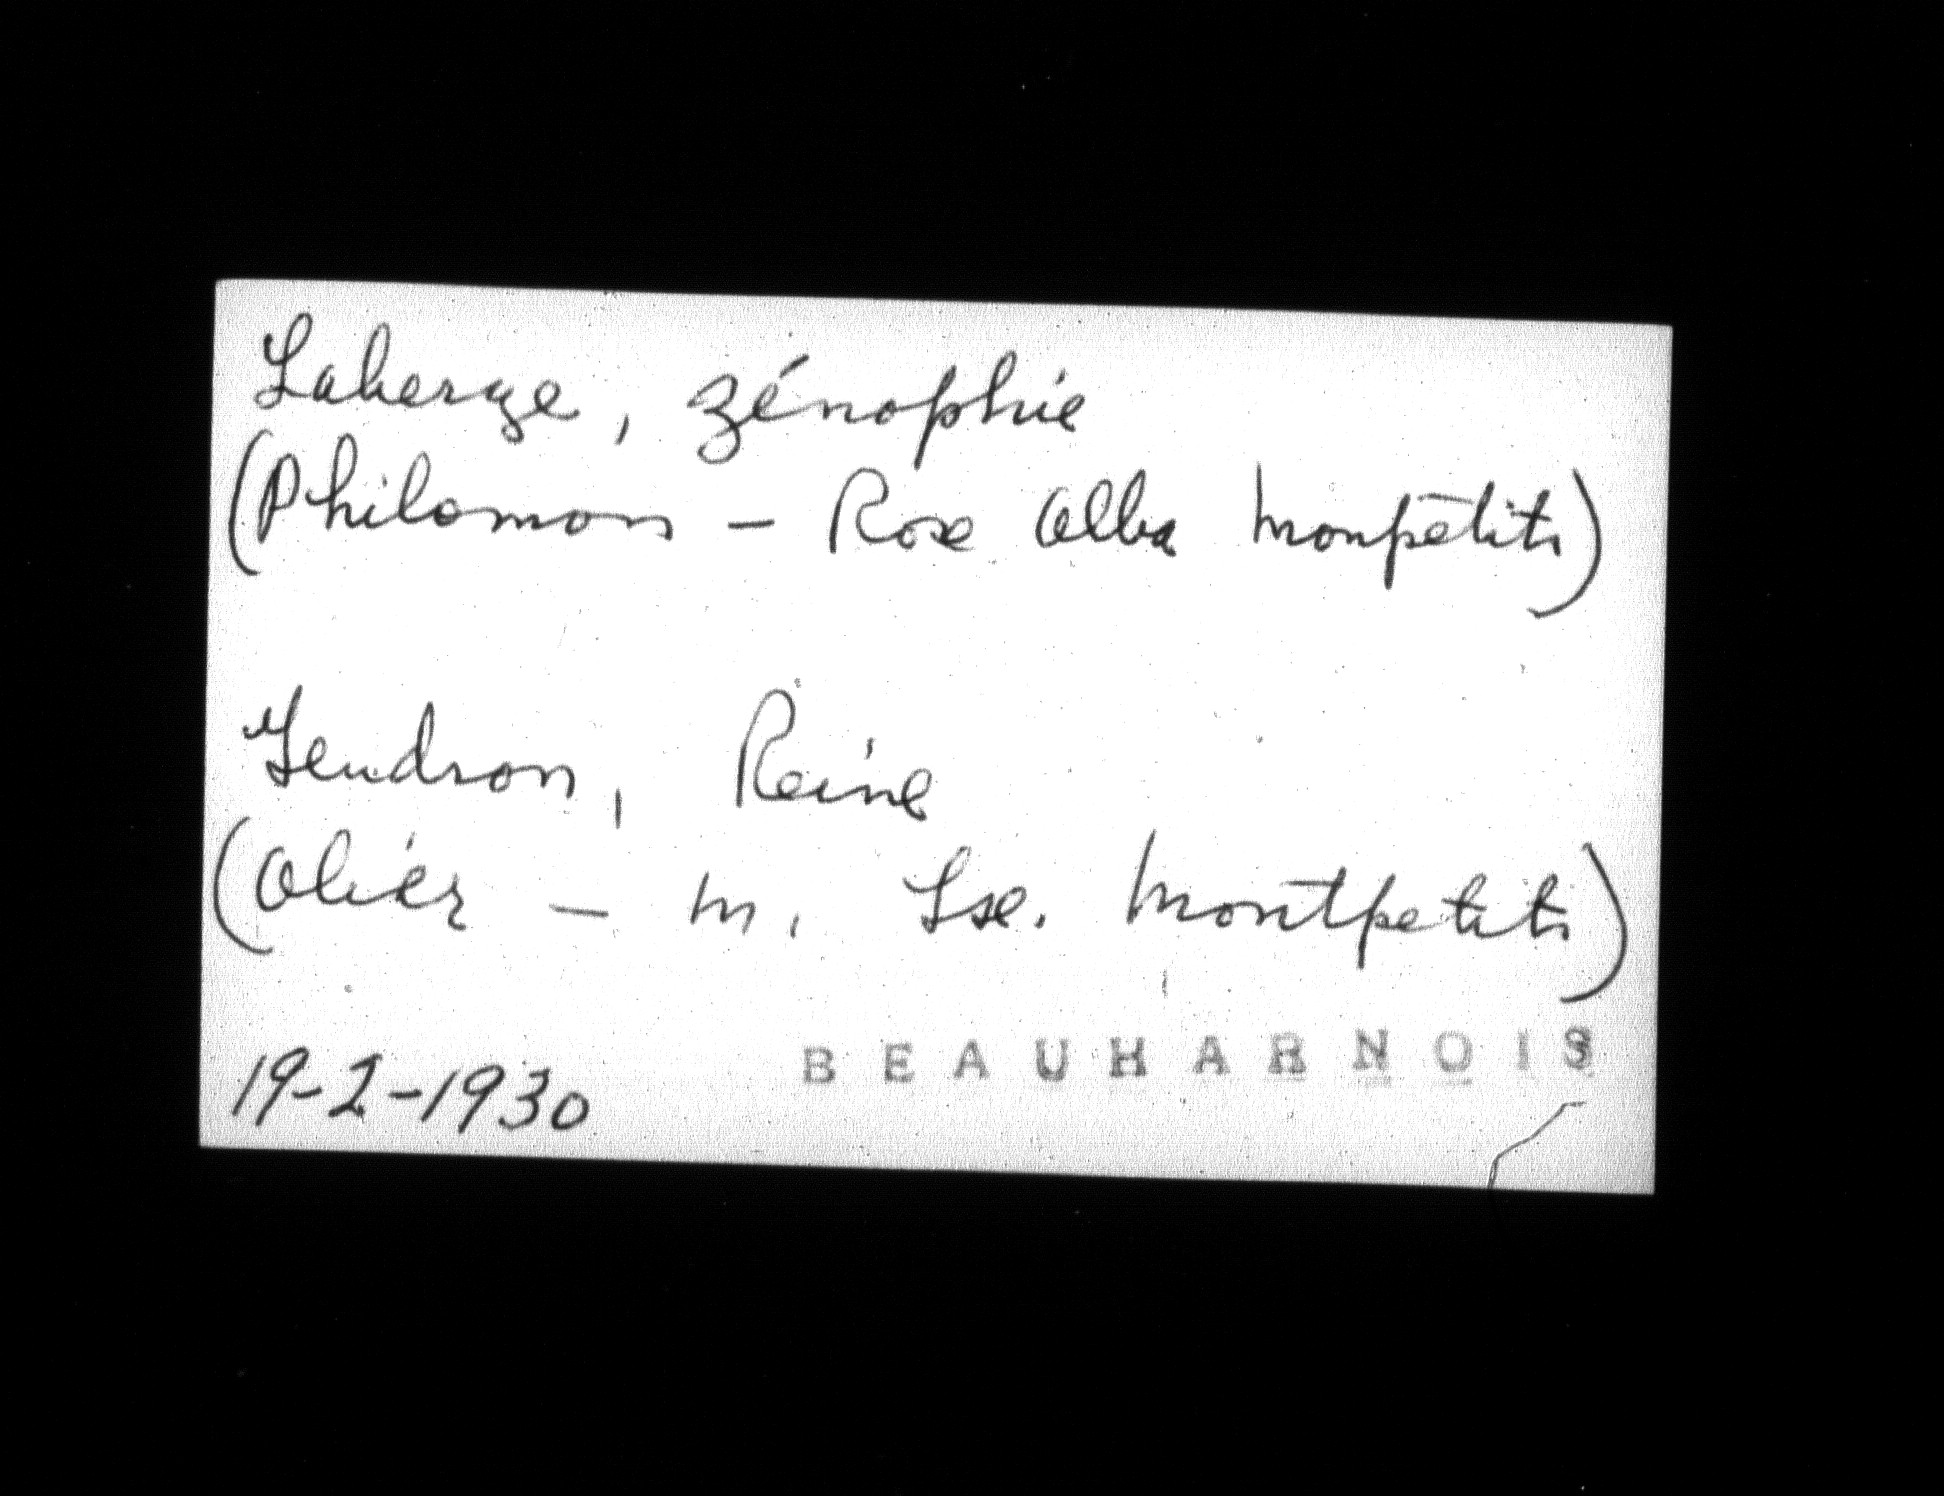 Laberge, Zénophie
(Philomon - Rose Alba Monpetits)
Gendron, Reine
(Olier - M. Lse. Montpetits)
19-2-1930 BEAUHARNOIS